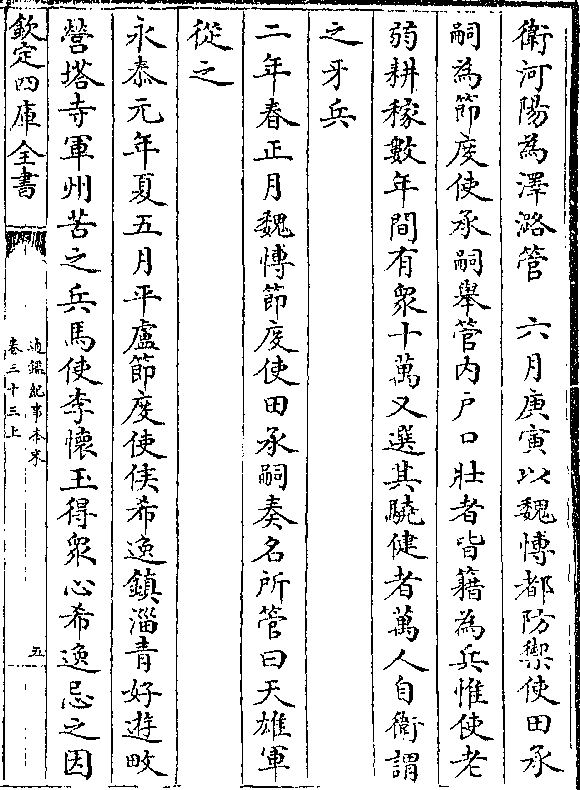 衛河陽為澤潞管　六月庚寅以魏愽都防禦使田承
嗣為節度使承嗣舉管内户口壮者皆籍為兵惟使老
弱耕稼數年間有衆十萬又選其驍健者萬人自衛謂
之牙兵
二年春正月魏愽節度使田承嗣奏名所管曰天雄軍
從之
永泰元年夏五月平盧節度使侯希逸鎮淄青好遊畋
營塔寺軍州苦之兵馬使李懷玉得衆心希逸忌之因
欽定四庫全書
通鑑紀事本末
卷三十三上
五